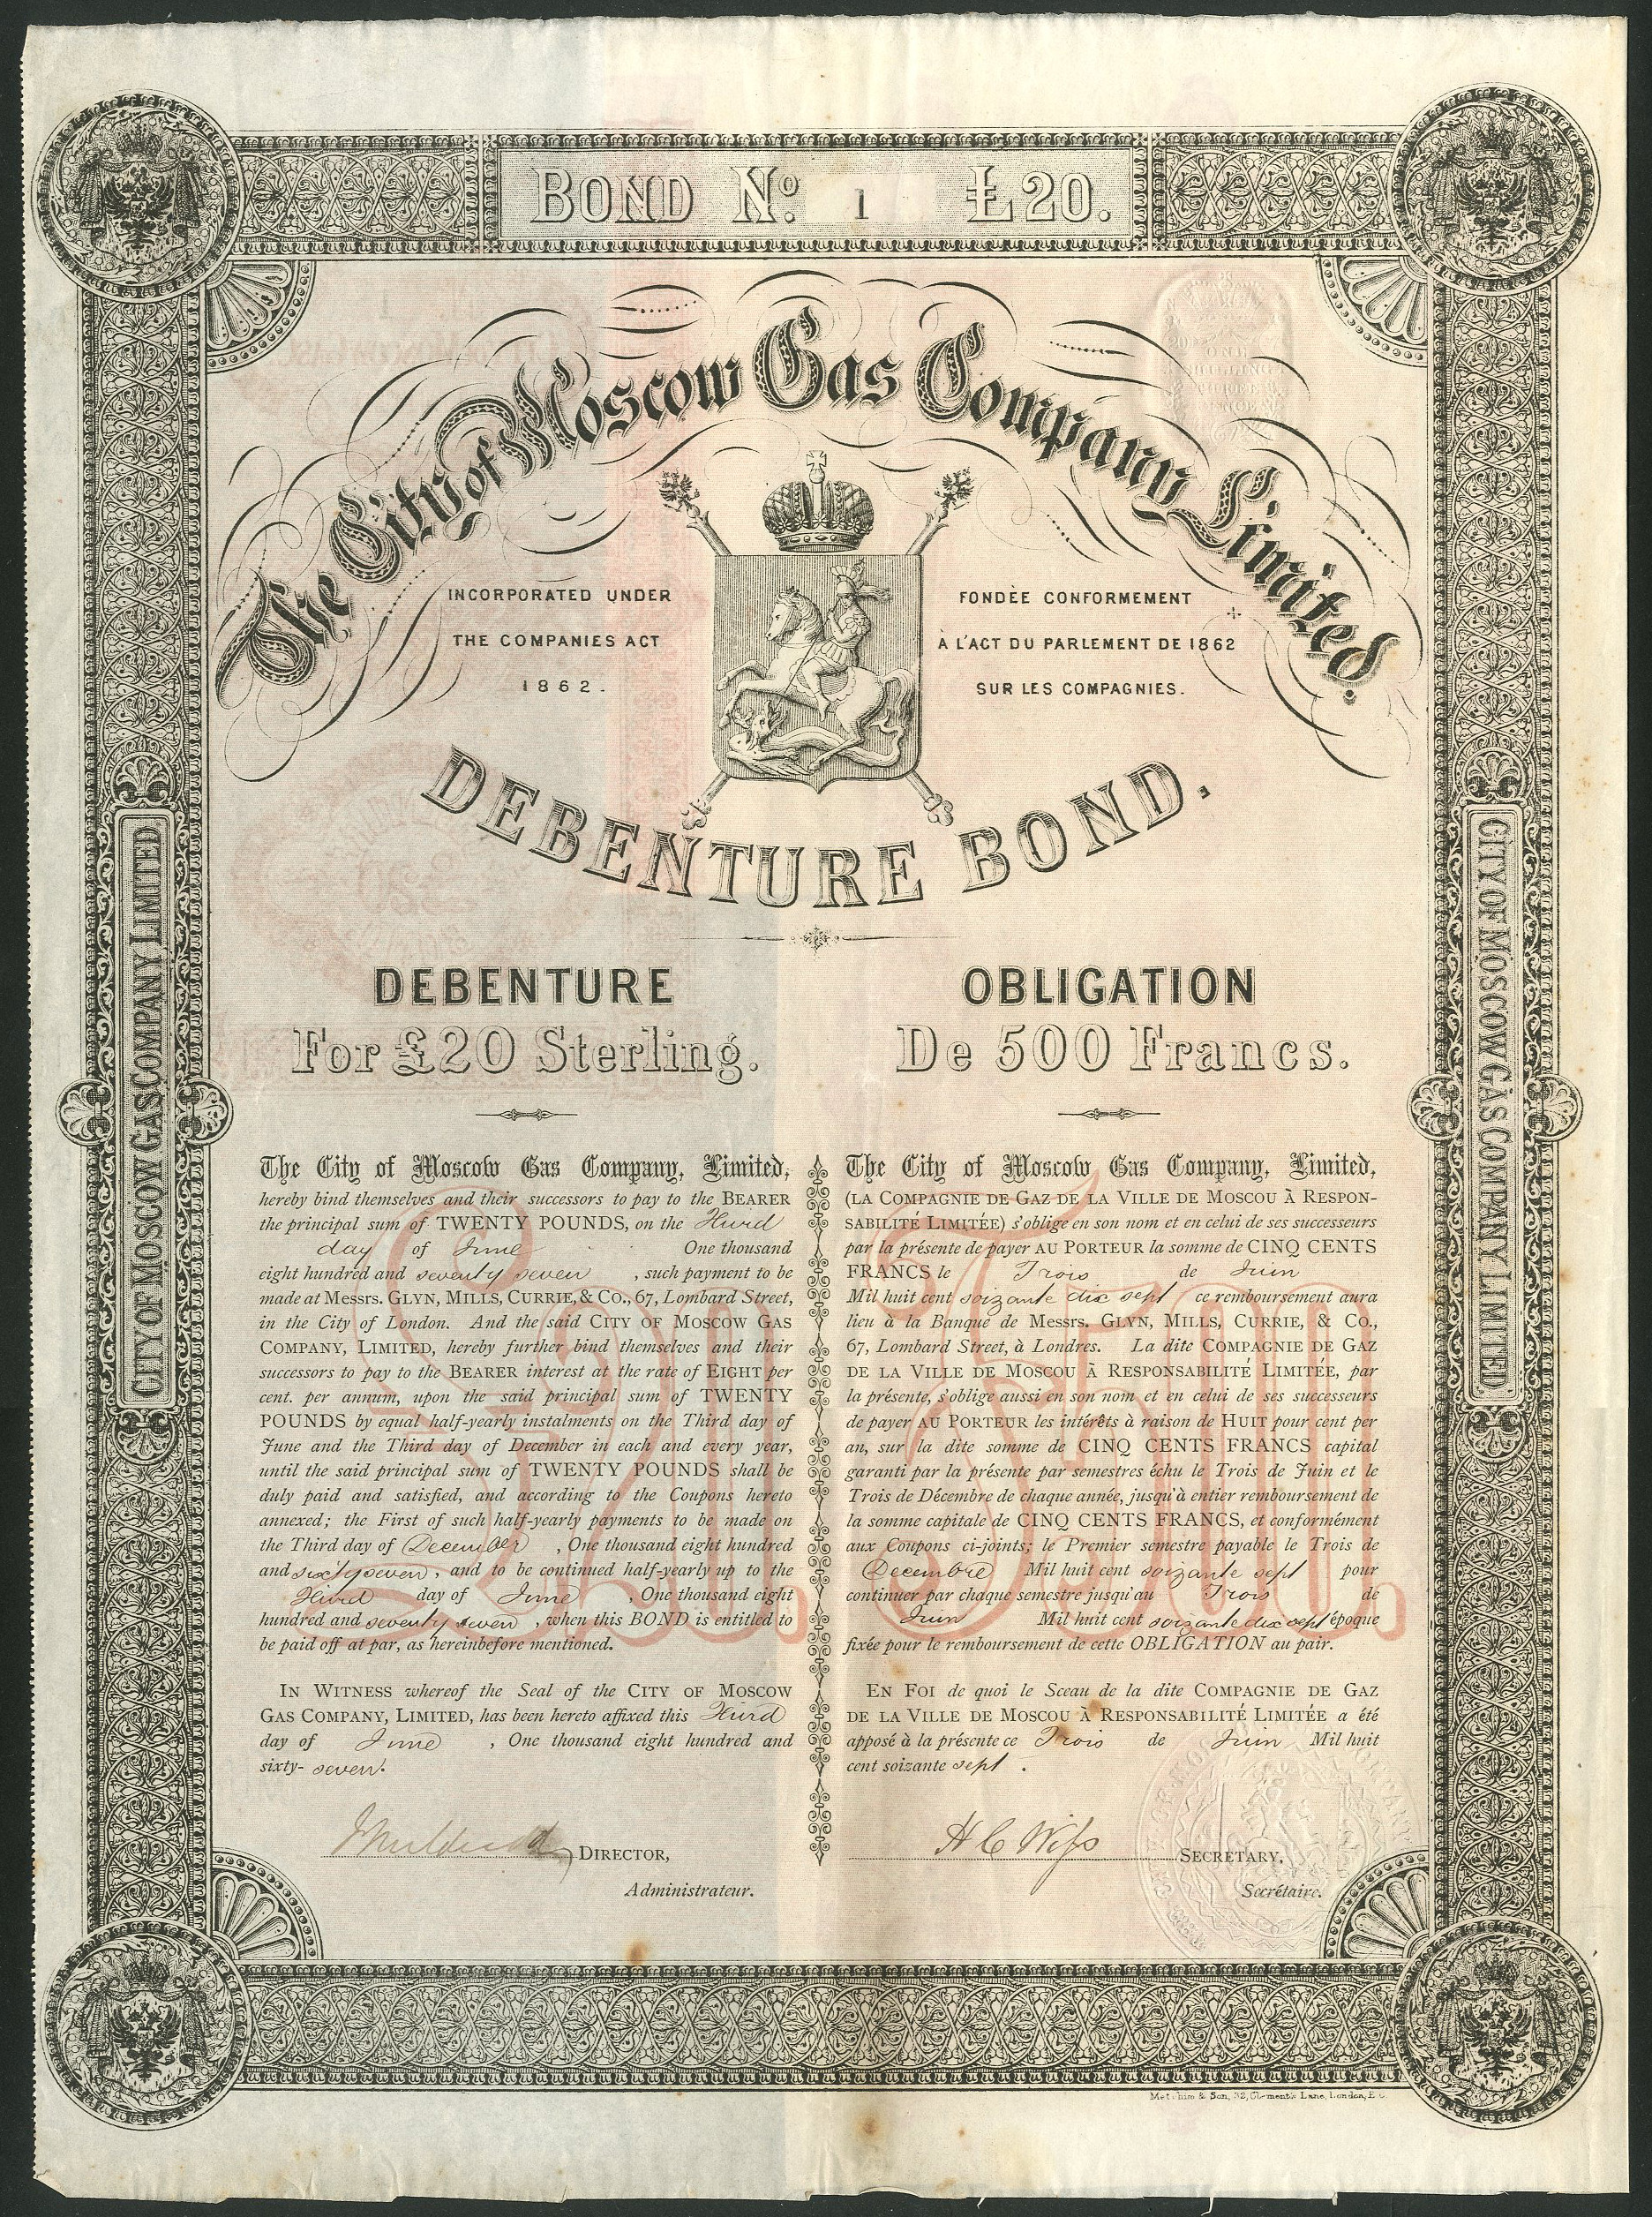 BOND No. 1 £20.
The City of Moscow Gas Company Limited.
INCORPORATED UNDER
THE COMPANIES ACT
1862.
FONDÈE CONFORMEMENT
À L'ACT DU PARLEMENT DE 1862
SUR LES COMPAGNIES.
DEBENTURE BOND.
CITY OF MOSCOW GAS COMPANY LIMITED
CITY OF MOSCOW GAS COMPANY LIMITED
DEBENTURE
For £20 Sterling.
The City of Moscow Gas Company, Limited,
hereby bind themselves and their successors to pay to the BEARER
the principal sum of TWENTY POUNDS, on the Third
day of June One thousand
eight hundred and seventy seven , such payment to be
made at Messrs. GLYN, MILLS, CURRIE, & Co., 67, Lombard Street,
in the City of London. And the said CITY OF MOSCOW GAS
COMPANY, LIMITED, hereby further bind themselves and their
successors to pay to the BEARER interest at the rate of EIGHT per
cent. per annum, upon the said principal sum of TWENTY
POUNDS by equal half-yearly instalments on the Third day of
June and the Third day of December in each and every year,
until the said principal sum of TWENTY POUNDS shall be
duly paid and satisfied, and according to the Coupons hereto
annexed; the First of such half-yearly payments to be made on
the Third day of December , One thousand eight hundred
and sixty seven, and to be continued half-yearly up to the
Third day of June , One thousand eight
hundred and seventy seven , when this BOND is entitled to
be paid off at par, as hereinbefore mentioned.
IN WITNESS whereof the Seal of the CITY OF MOSCOW
GAS COMPANY, LIMITED, has been hereto affixed this Third
day of June , One thousand eight hundred and
sixty- seven.
DIRECTOR,
Administrateur.
OBLIGATION
De 500 Francs.
The City of Moscow Gas Company, Limited,
(LA COMPAGNIE DE GAZ DE LA VILLE DE MOSCOU À RESPON-
SABILITÉ LIMITÉE) s'oblige en son nom et en celui de ses successeurs
par la présente de payer AU PORTEUR la somme de CINQ CENTS
FRANCS le Trois de Juin
Mil huit cent soizante dix sept ce remboursement aura
lieu à la Banque de Messrs. GLYN, MILLS, CURRIE, & Co.,
67, Lombard Street, à Londres. La dite COMPAGNIE DE GAZ
DE LA VILLE DE MOSCOU À RESPONSABILITÉ LIMITÉE, par
la présente, s'oblige aussi en son nom et en celui de ses successeurs
de payer AU PORTEUR les intérêts à raison de HUIT pour cent per
an, sur la dite somme de CINQ CENTS FRANCS capital
garanti par la présente par semestres échu le Trois de Juin et le
Trois de Décembre de chaque année, jusqu'à entier remboursement de
la somme capitale de CINQ CENTS FRANCS, et conformément
aux Coupons ci-joints; le Premier semestre payable le Trois de
Decembre Mil huit cent soizante sept pour
continuer par chaque semestre jusqu'au Trois de
Juin Mil huit cent soizante dix sept époque
fixée pour le remboursement de cette OBLIGATION au pair.
EN FOI de quoi le Sceau de la dite COMPAGNIE DE GAZ
DE LA VILLE DE MOSCOU À RESPONSABILITÉ LIMITÉE a été
apposé à la présente ce Trois de Juin Mil huit
cent soizante sept .
SECRETARY,
Secrétaire.
£20. F500.
Metchim & Son, 32, Clement's Lane, London, E.C.